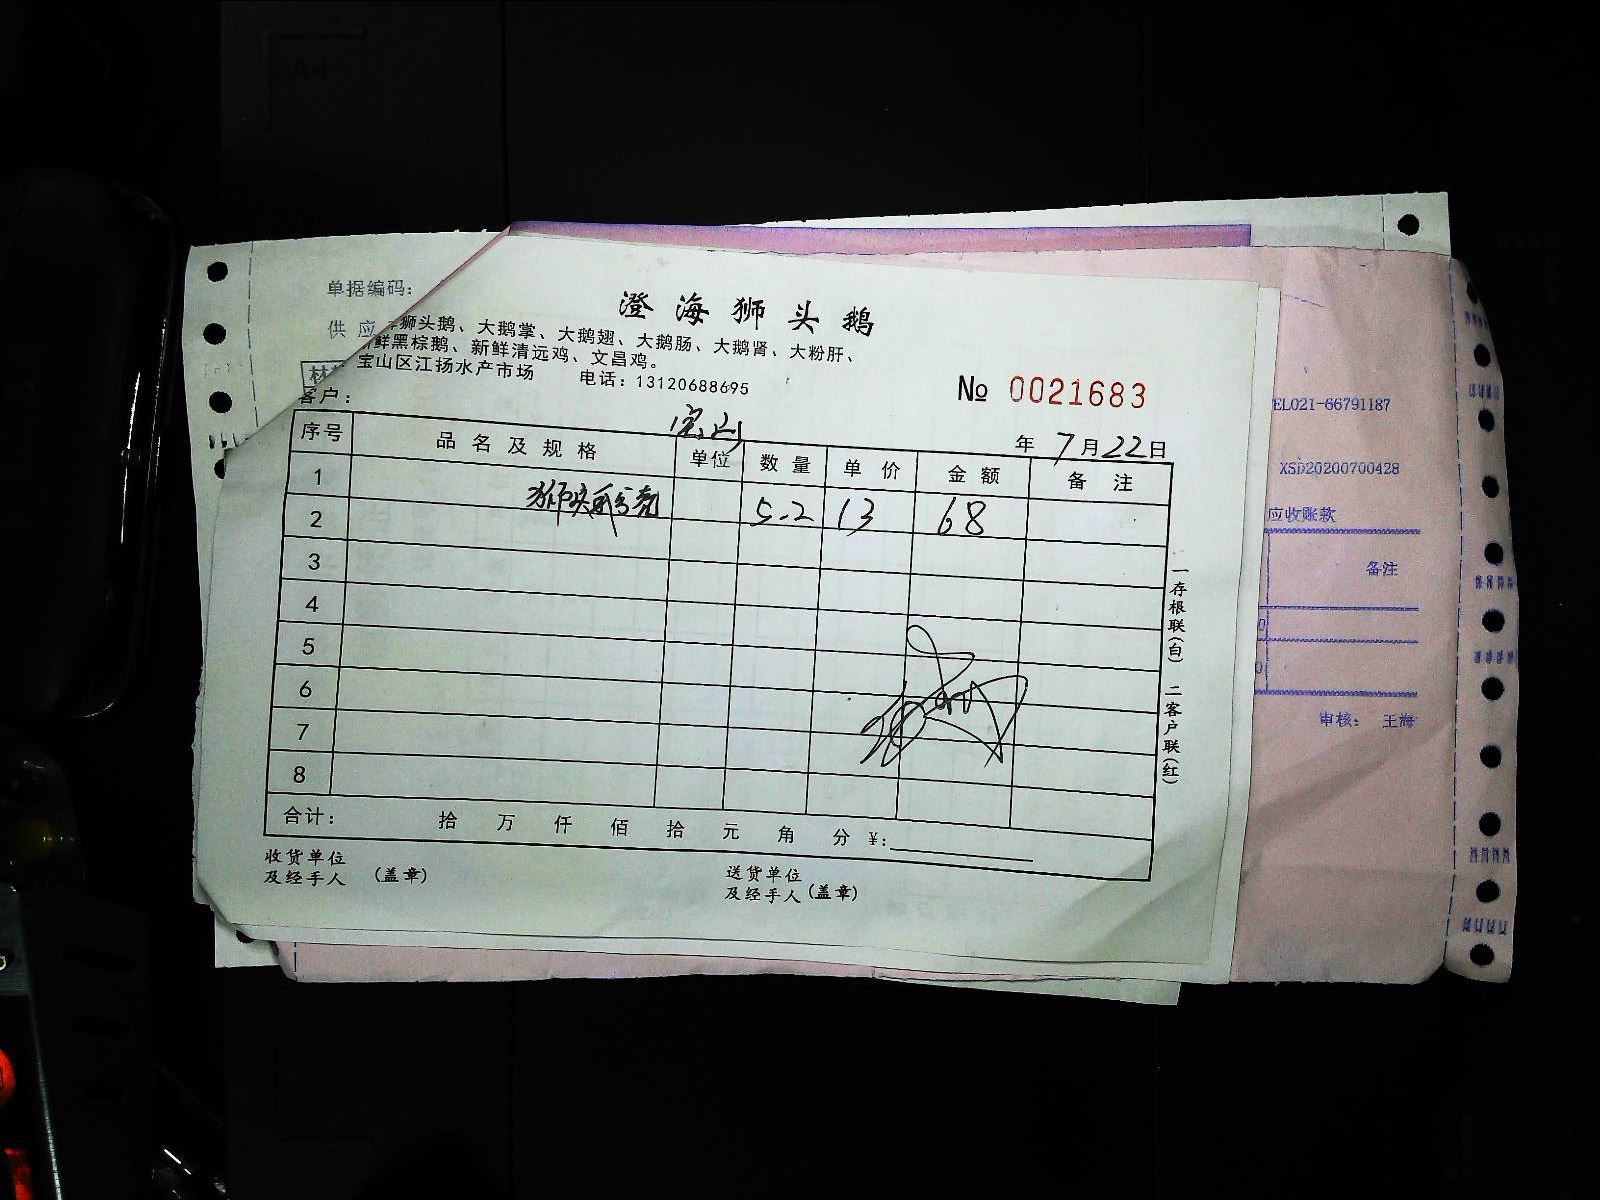 单据编码:
澄海狮头鹅
供应
狮头鹅、大鹅掌、大鹅翅、大鹅肠、大鹅肾、大粉肝、
鲜黑棕鹅、新鲜清远鸡、文昌鸡。
宝山区江扬水产市场 电话:13120688695
№ 0021683
客户:
宝山
年 7月22日
序号 品名及规格 单位 数量 单价 金额 备注
1
2 5.2 13 68
3
4
5
6
7
8
合计: 拾 万 仟 佰 拾 元 角 分 ¥:
收货单位
及经手人 (盖章)
送货单位
及经手人(盖章)
一存根联(白) 二客户联(红)
EL021-66791187
XSD20200700428
应收账款
备注
审核: 王海